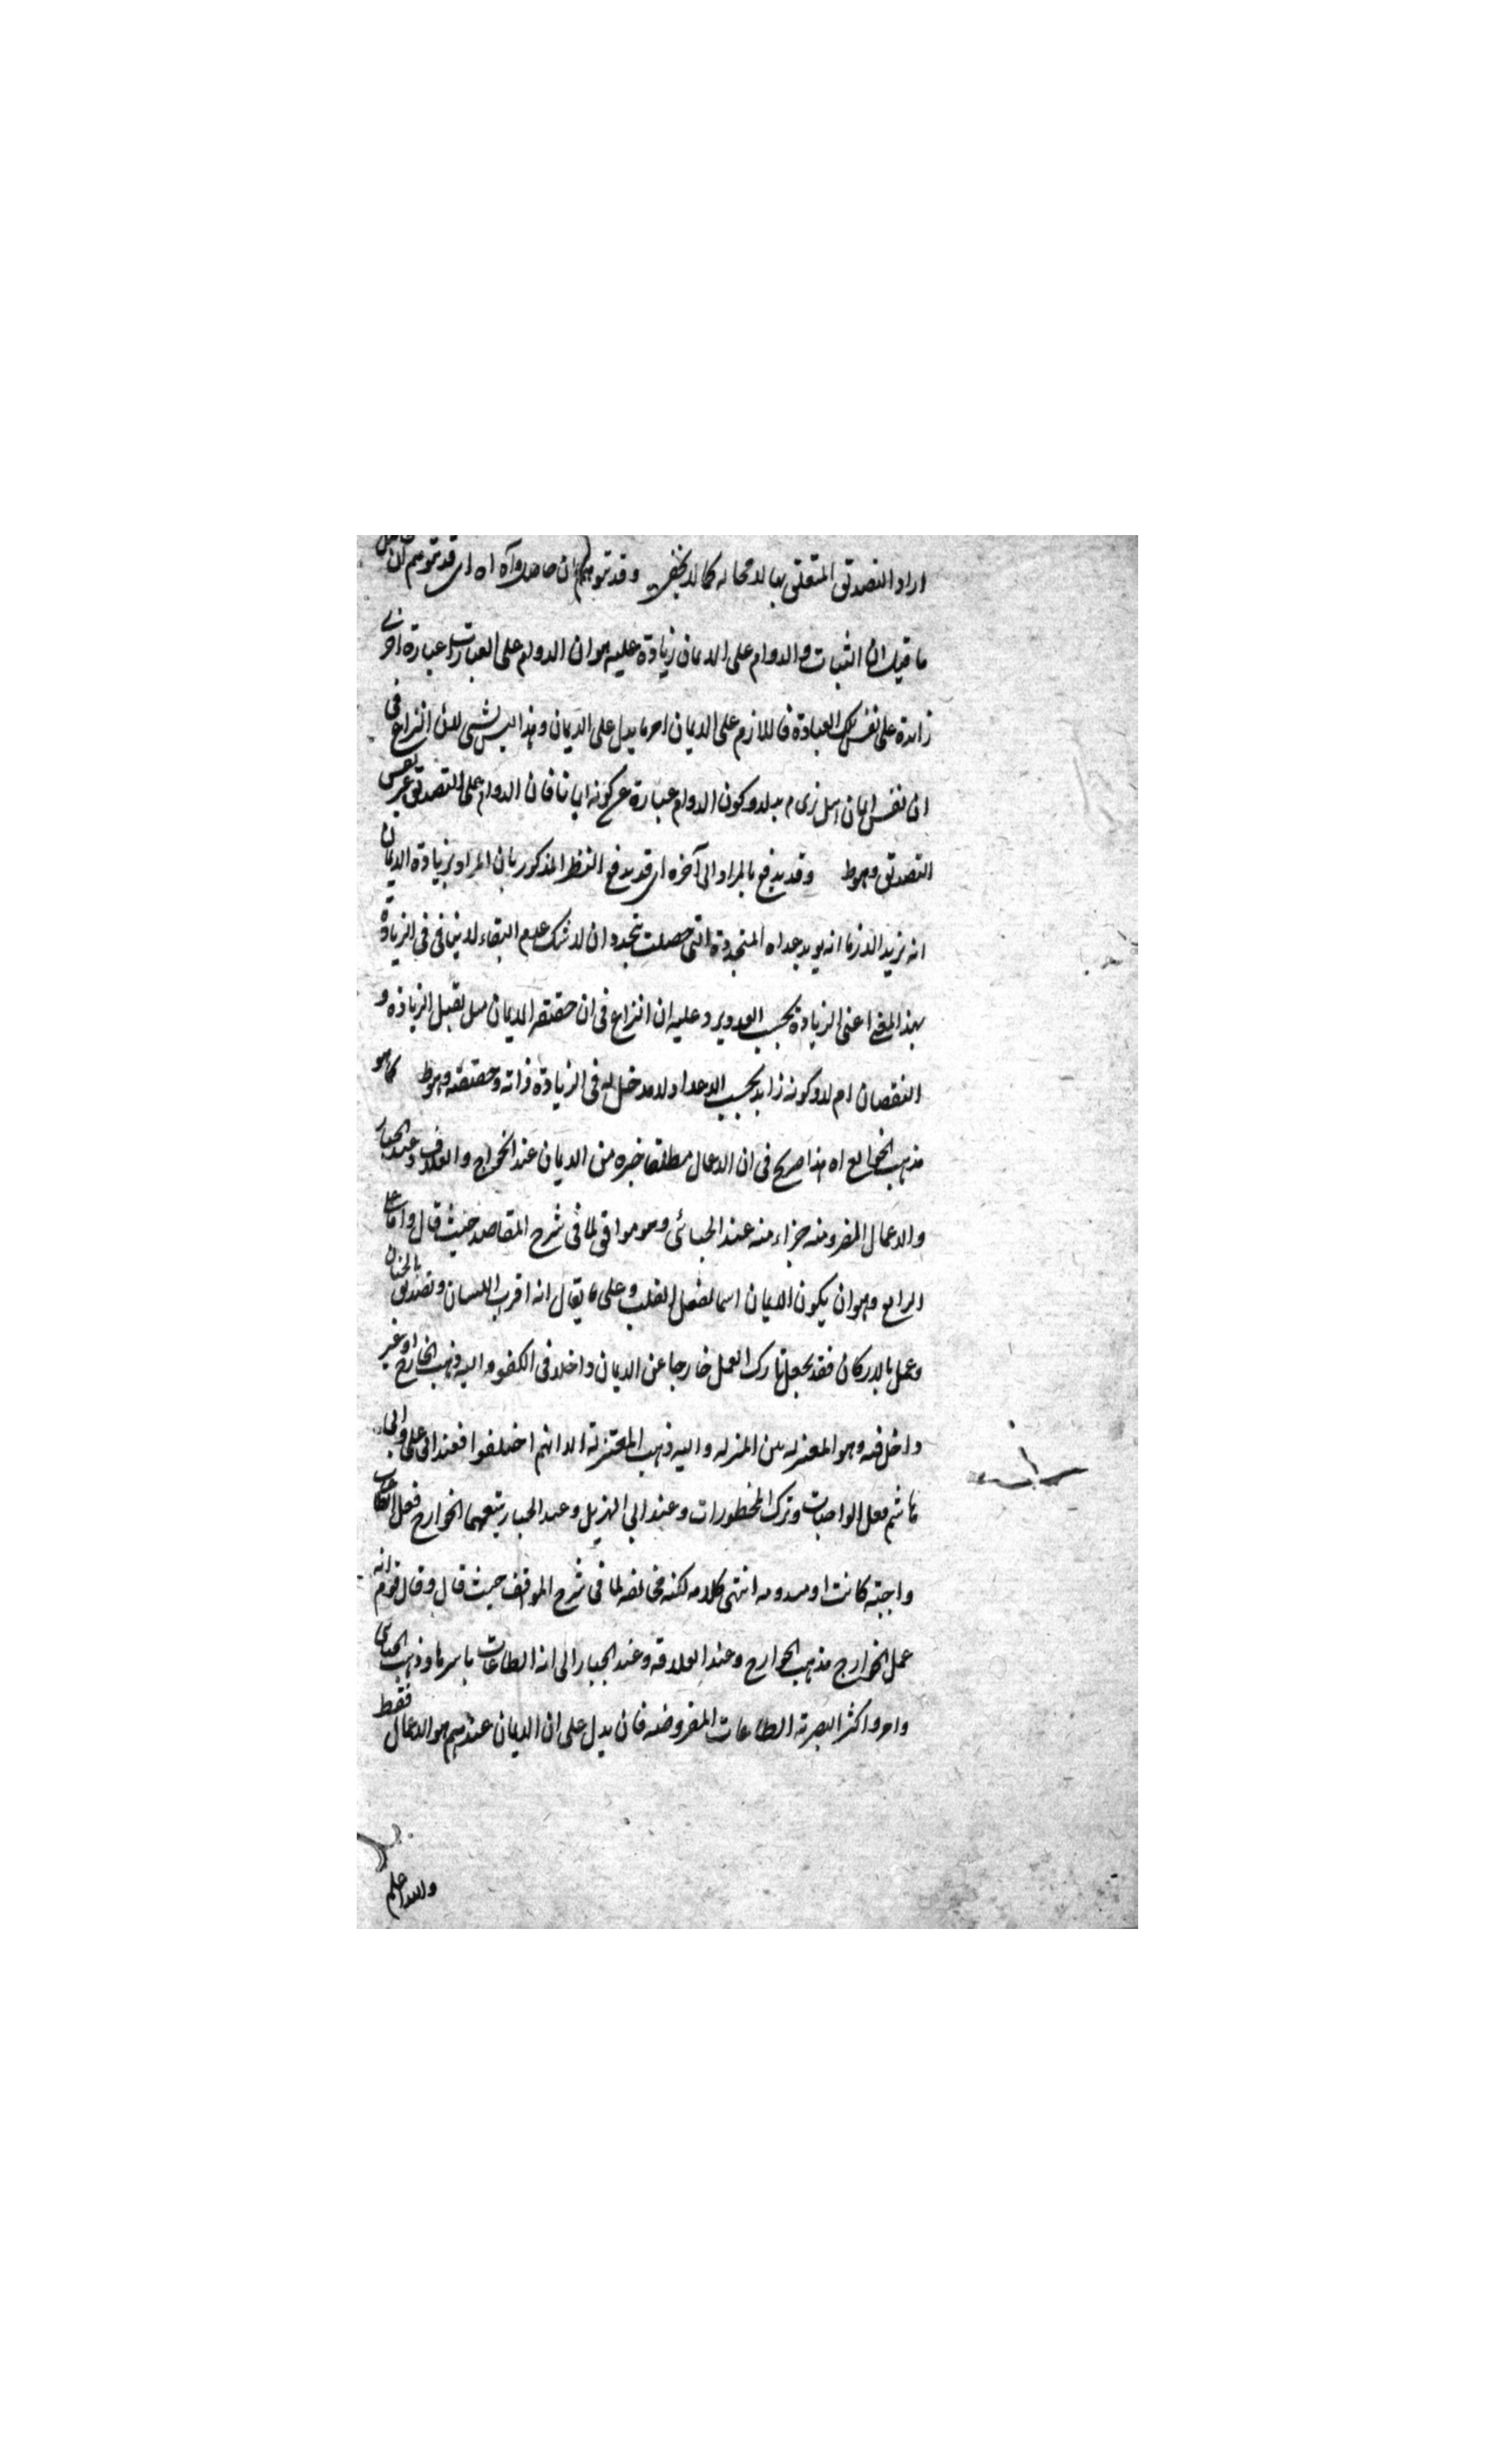 اراد التصديق المتعلق بها لا محالة كما لا يخفى وقد توهم ان حاصل آه اى قد توهم ان حاصل
ما قيل ان الثبات والدوام على الايمان زيادة عليه هو ان الدوام على العبادة عبادة اخرى
زائدة على نفس تلك العبادة فاللازم على الايمان امر ما يدل على الايمان وهذا ليس بشئ لان النزاع فى
ان نفس الايمان هل يزيد ام لا وكون الدوام عبادة غير كونه ايمانا فان الدوام على التصديق غير نفس
التصديق وهو ط وقد يدفع بالمراد الى آخره اى قد يدفع النظر المذكور بان المراد بزيادة الايمان
انه يزيد المتجددة التى حصلت بتجدد ان لا شك عدم البقاء لا ينافى فى الزيادة
بهذا المعنى اعنى الزيادة بحسب العدد ويرد عليه ان النزاع فى ان حقيقة الايمان هل تقبل الزيادة و
النقصان ام لا وكونه زايد بحسب الاعداد لا مدخل له فى الزيادة ذاته وحقيقته وهو ط كما هو
مذهب الخوارج اه هذا صريح فى ان الاعمال مطلقا جزء من الايمان عند الخوارج والعلاف وعبد الجبار
والاعمال المفروضة جزاء منه عند الجبائى وهو موافق لما فى شرح المقاصد حيث قال واما على
الرابع وهو ان يكون الايمان اسما لفعل القلب وعلى ما يقال انه اقرار باللسان وتصديق بالجنان
وعمل بالاركان فقد يجعل تارك العمل خارجا عن الايمان داخلا فى الكفر واليه ذهب الخوارج او غير
داخل فيه وهو المنزلة بين المنزلة واليه ذهب المعتزلة الا انهم اختلفوا فعند ابى على وابى
هاشم فعل الواجبات وترك المحظورات وعند ابى الهذيل وعبد الجبار يتبعهما الخوارج فعل الطاعات
واجبة كانت او مندوبة انتهى كلامه لكنه مخالفة لما فى شرح المواقف حيث قال وقال قوم انه
عمل الجوارح مذهب الخوارج وعند العلافة وعبد الجبار الى انه الطاعات باسرها وذهب الجبائى
واكثر البصرية الطاعات المفروضة فان يدل على ان الايمان عندهم هو الاعمال فقط
والله اعلم